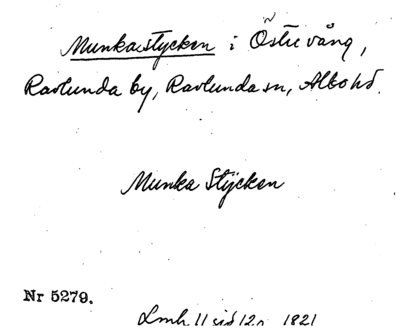 Munkastycken i Östre vång,
Ravlunda by, Ravlunda sn, Albo hd.
Munka Stÿcken
Nr 5279.
Lmh 11 sid 12 1821